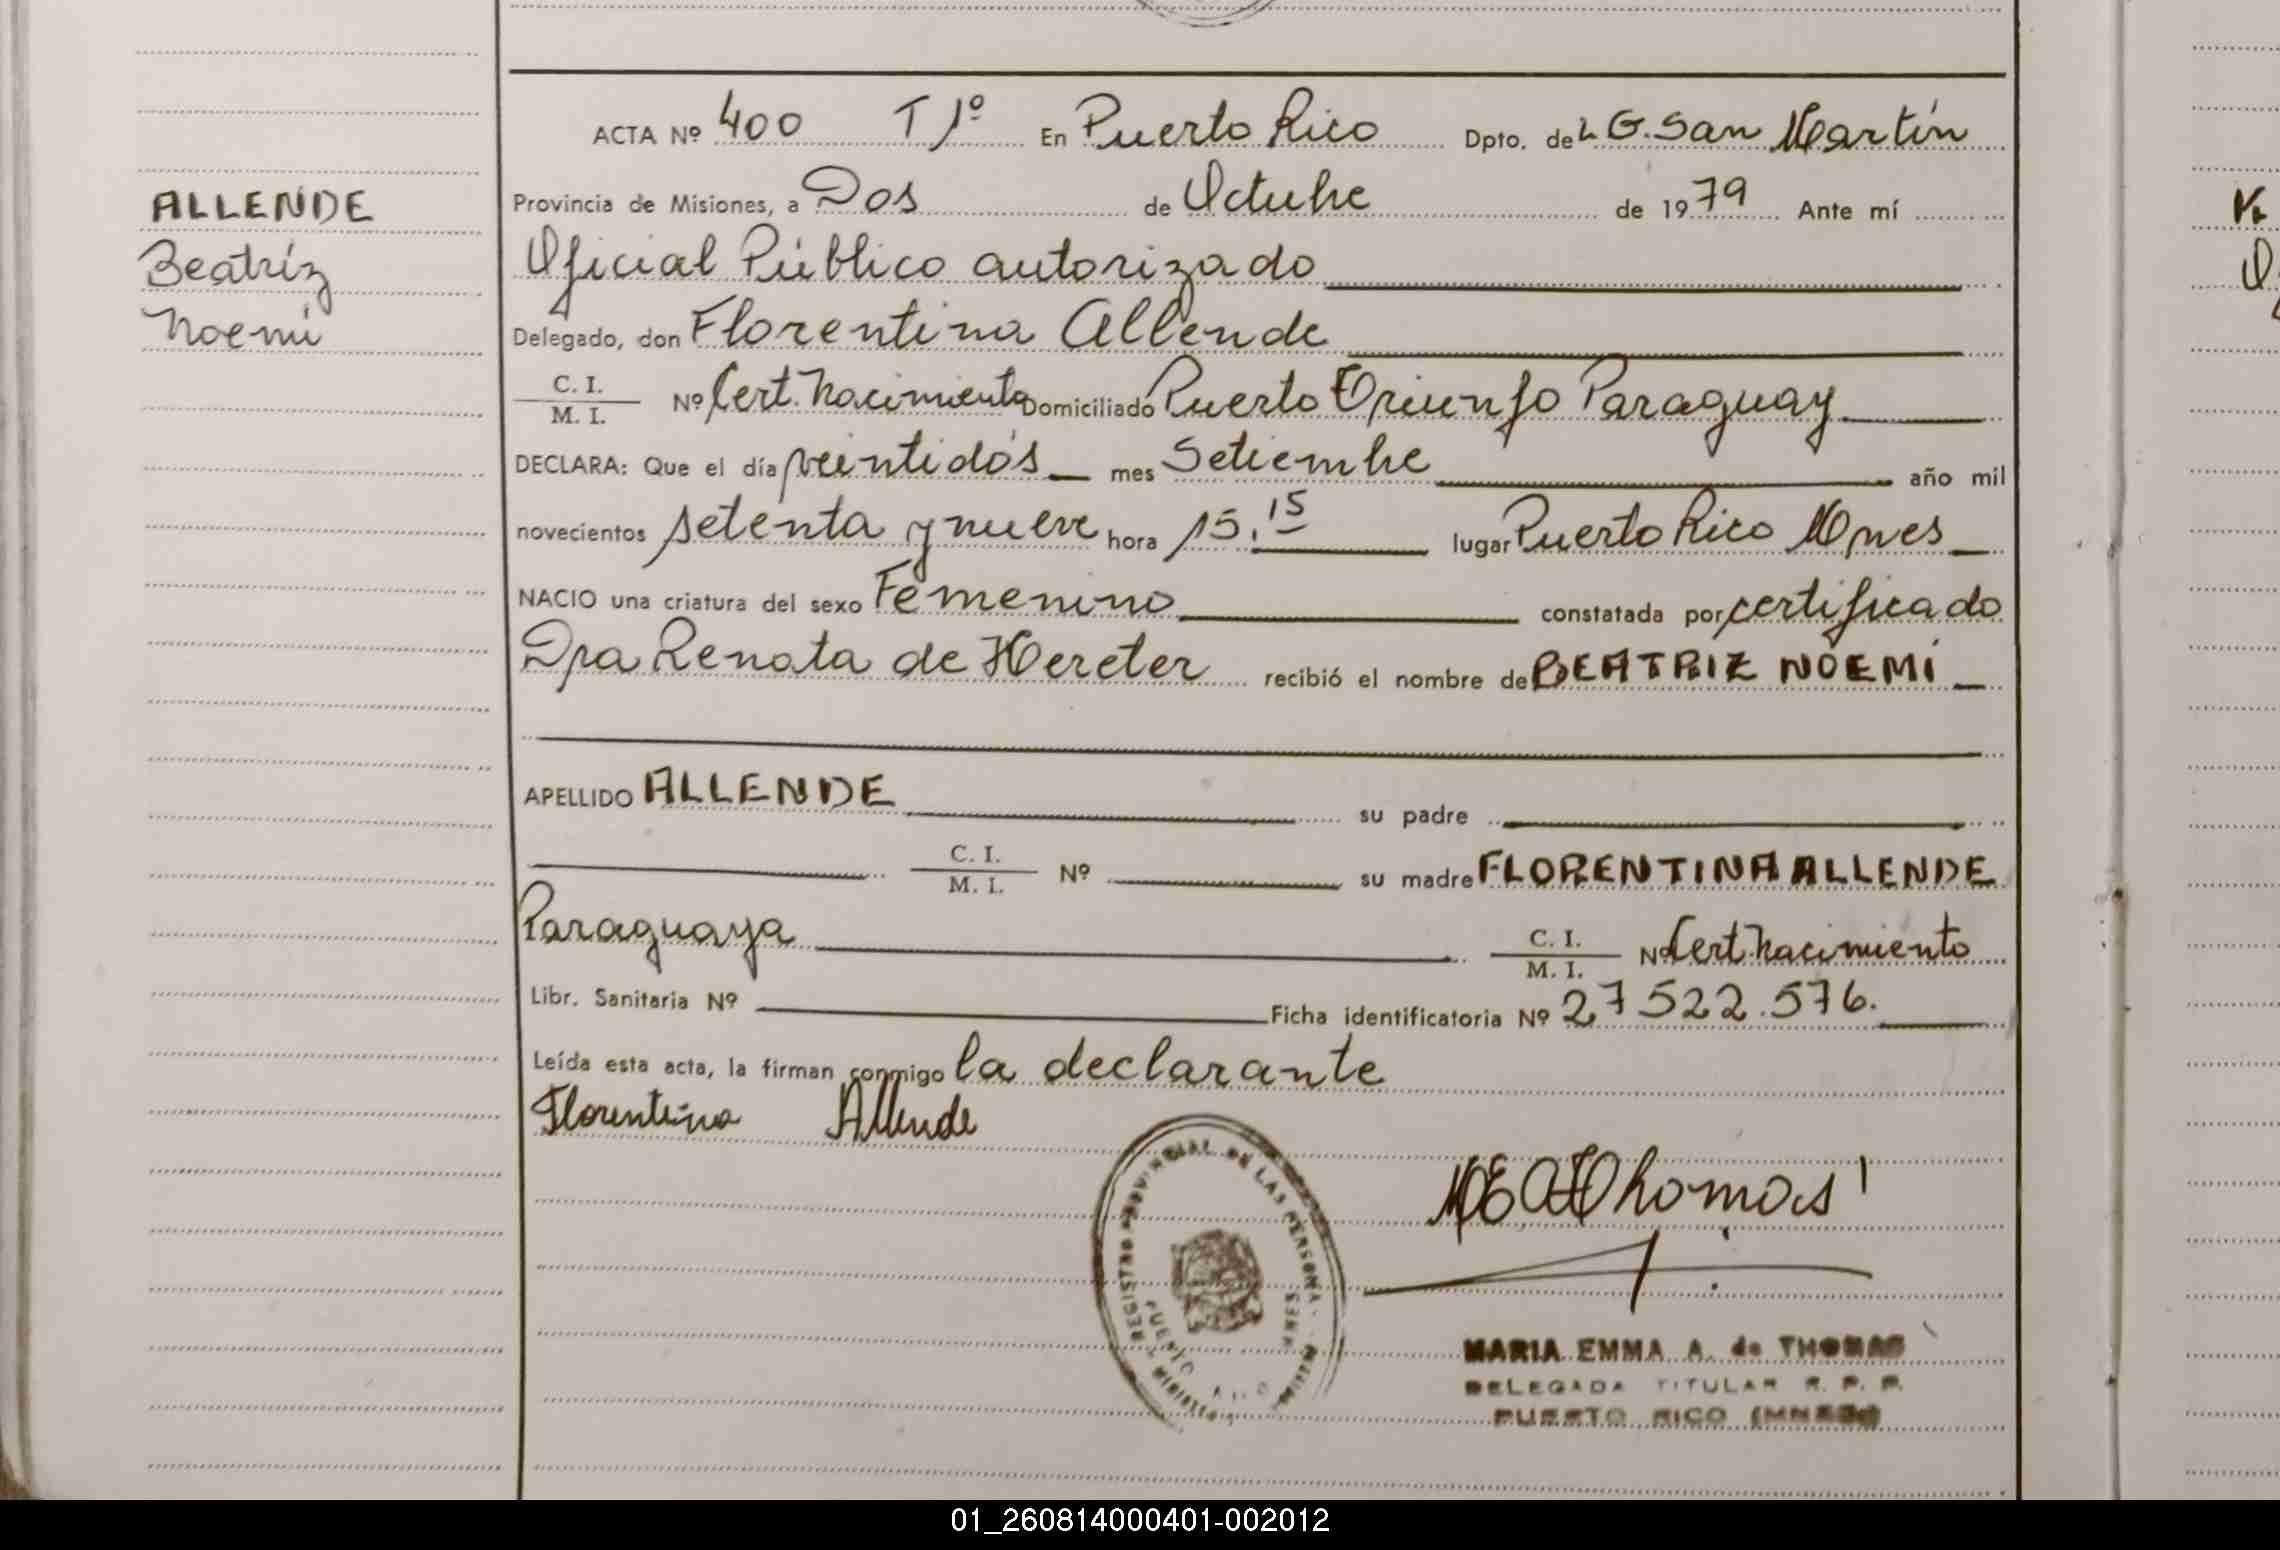 ALLENDE
Beatríz
Noemí
ACTA Nº 400 T 1º En Puerto Rico Dpto. de L. G. San Martín
Provincia de Misiones, a Dos de Octubre de 1979 Ante mí
Oficial Público autorizado
Delegado, don Florentina Allende
C. I.
M. I. Nº Cert. Nacimiento Domiciliado Puerto Triunfo Paraguay
DECLARA: Que el día veintidós mes Setiembre año mil
novecientos setenta y nueve hora 15.15 lugar Puerto Rico Mnes
NACIO una criatura del sexo Femenino constatada por certificado
Dra Renata de Hereter recibió el nombre de BEATRIZ NOEMÍ
APELLIDO ALLENDE su padre
C. I.
M. I. Nº su madre FLORENTINA ALLENDE
Paraguaya C. I.
M. I. Nº Cert. Nacimiento
Libr. Sanitaria Nº Ficha identificatoria Nº 27522.576.
Leída esta acta, la firman conmigo la declarante
Florentina Allende
REGISTRO PROVINCIAL DE LAS PERSONAS
PUERTO RICO
MARIA EMMA A. de THOMAS
DELEGADA TITULAR R. P. P.
PUERTO RICO (MNES)
01_260814000401-002012